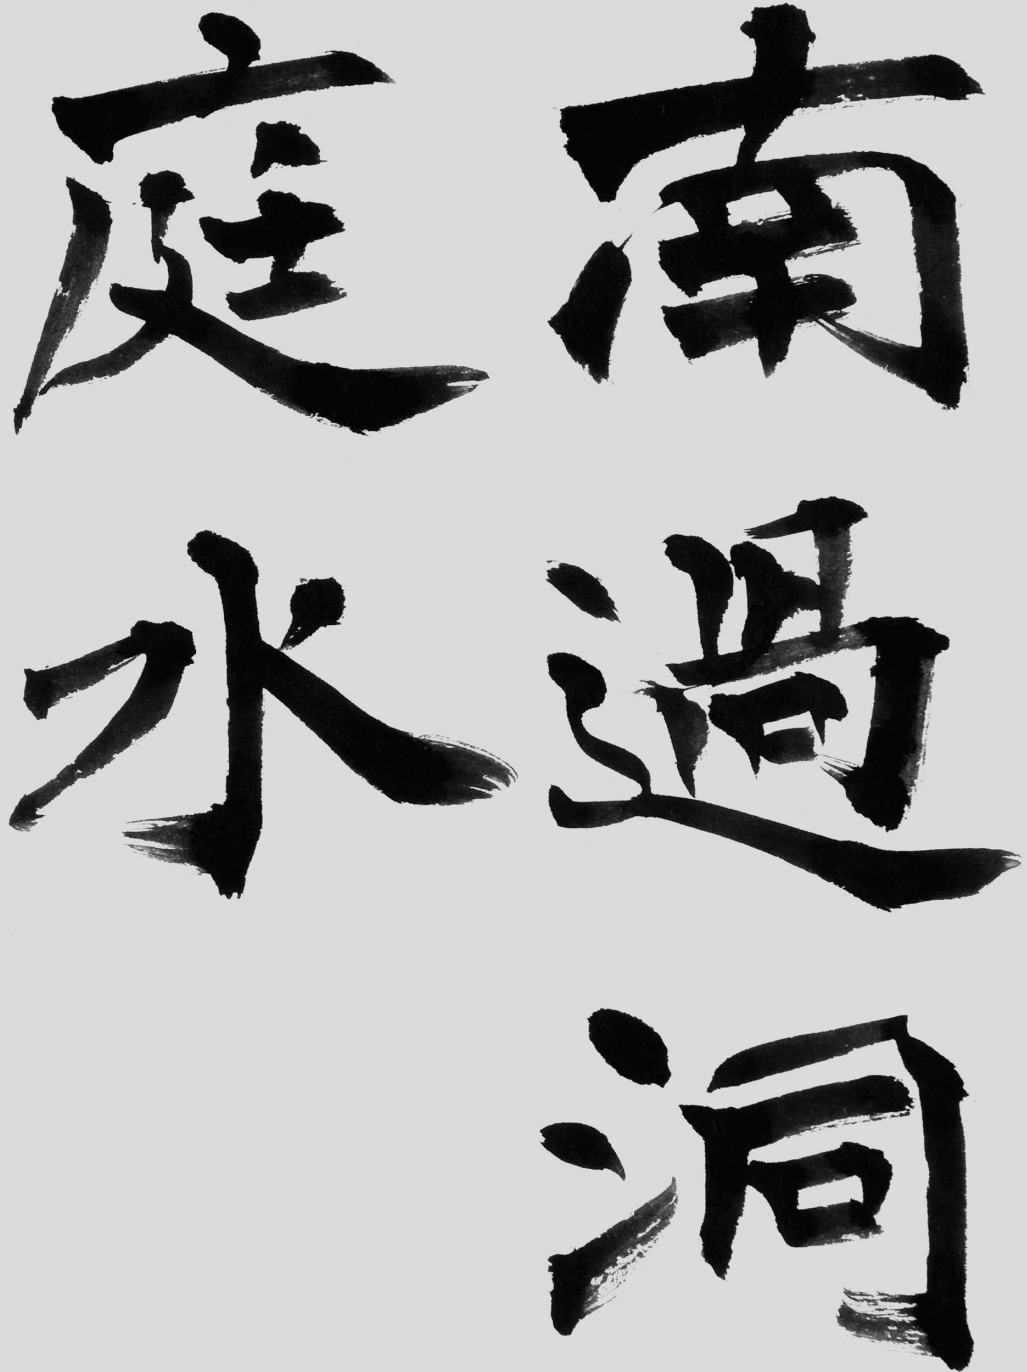 南過洞
庭水